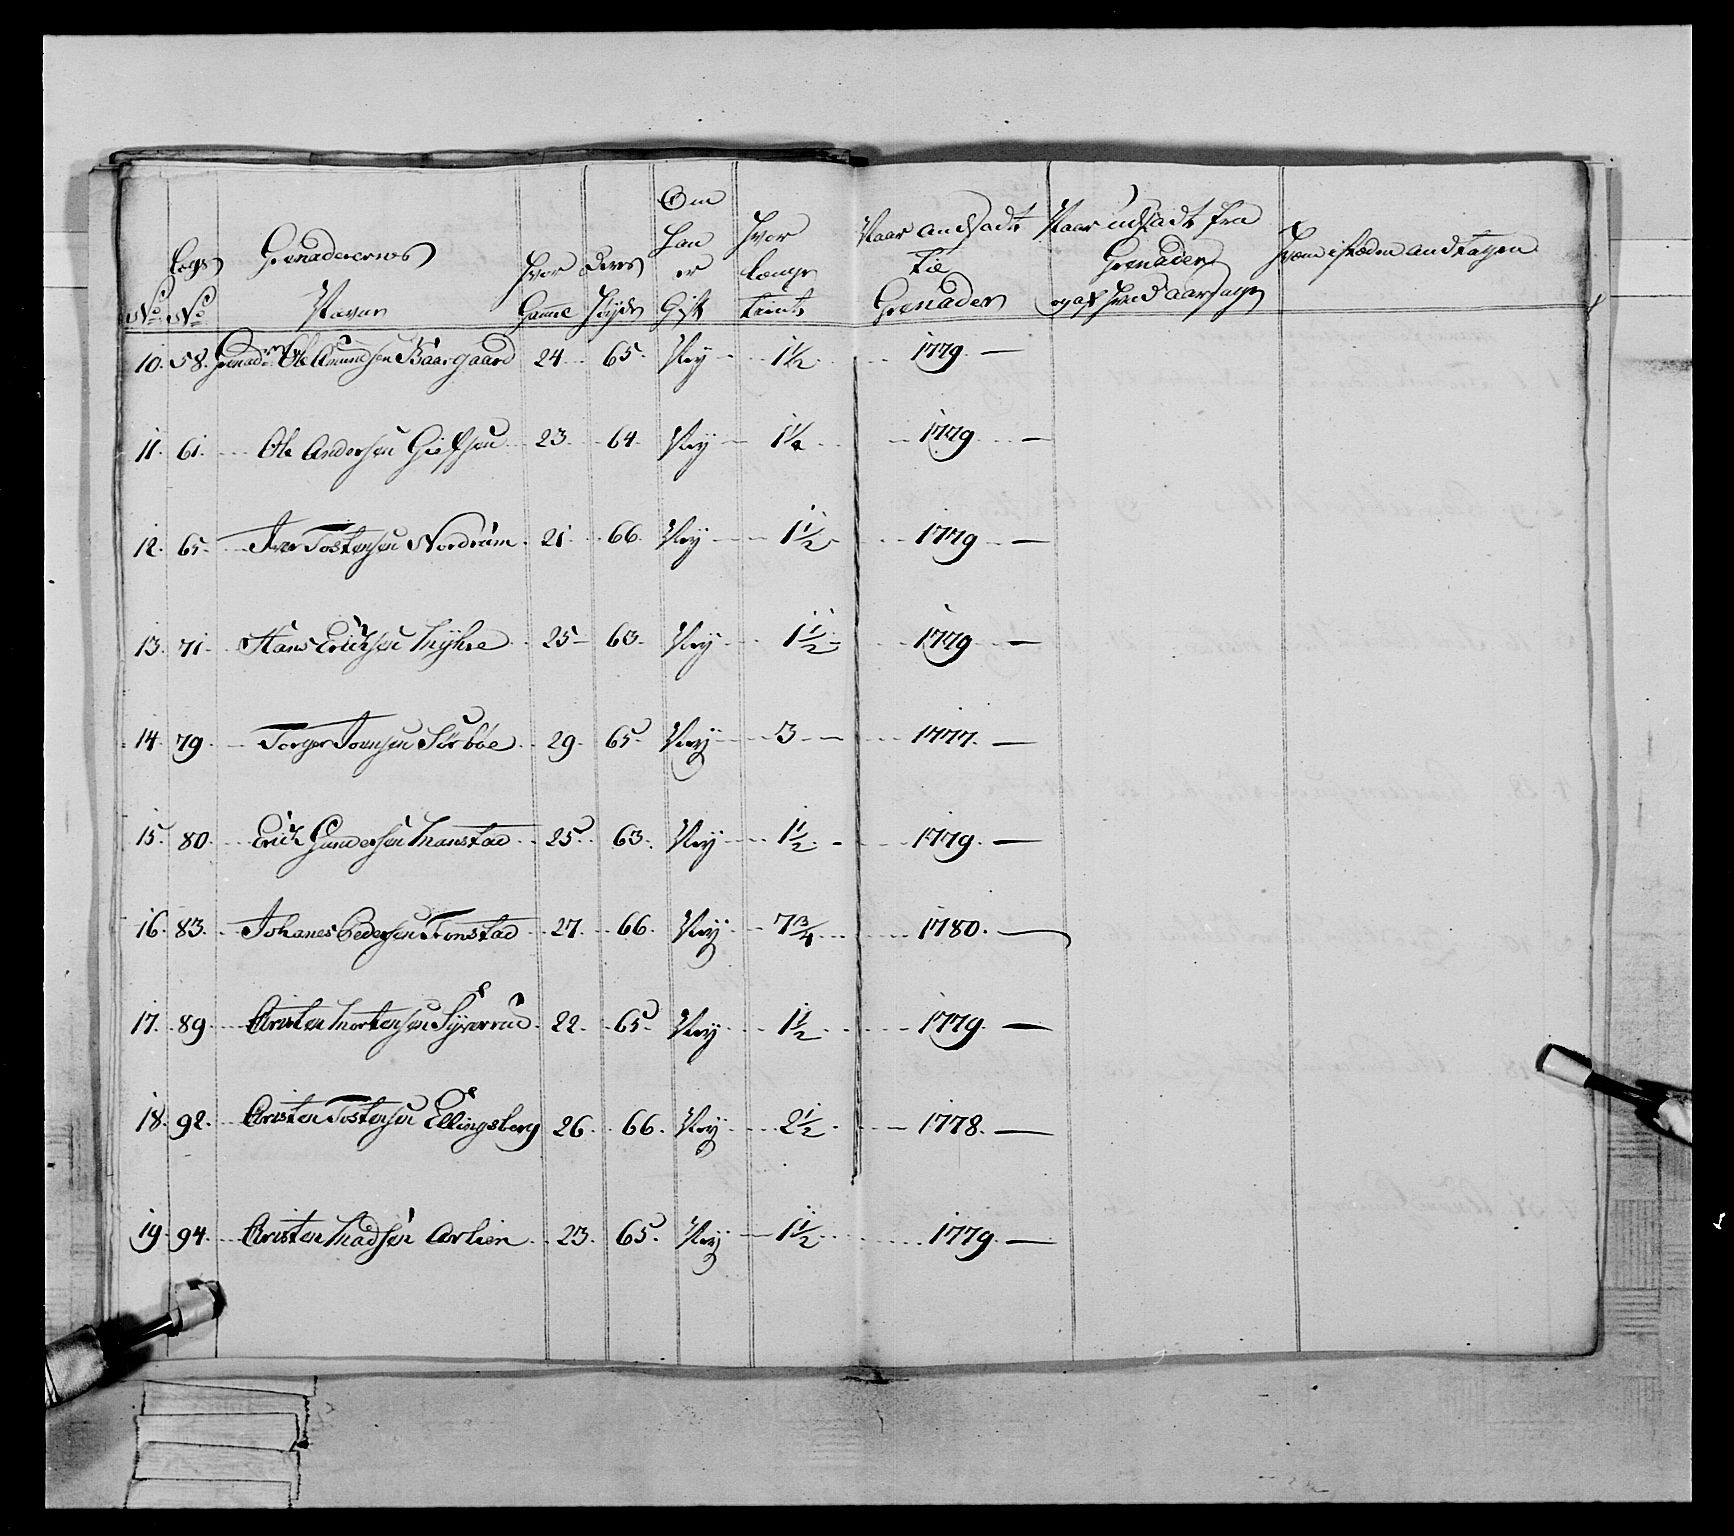 No. Legs No. Grenaderernes Navne Hvor Gamle Deres Höyde Om Han er Gift Hvor længe tient Naar andsadt til Grenader Naar udsadt fra Grenader og af Hvad aarsage Hvem i steden andtagen
10. 58. Grenader Ole Amundsen Baargaard 24 65. Ney 1½ 1779.
11. 61. Ole Andersen 23 64 Ney 1½ 1779
12. 65. Iver Tostensen Nordrüm 21 66 Ney 1½ 1779
13. 71. Hans Erichsen Myhre 25 63. Ney 1½ 1779
14. 79. Torger Joensen Sörböe 29. 65. Ney 3 1777.
15. 80. Erich Gundersen Manstad 25 63. Ney 1½ 1779.
16. 83. Johanes Pedersen Tronstad 27. 66. Ney 7¾ 1780.
17. 89. Christen Mortensen Syverrud 22. 65 Ney 1½ 1779.
18. 92. Christen Tostensen Ellingsberg 26. 66. Ney 2½ 1778.
19. 94. Christen Madsen Arlien 23. 65. Ney 1½ 1779.